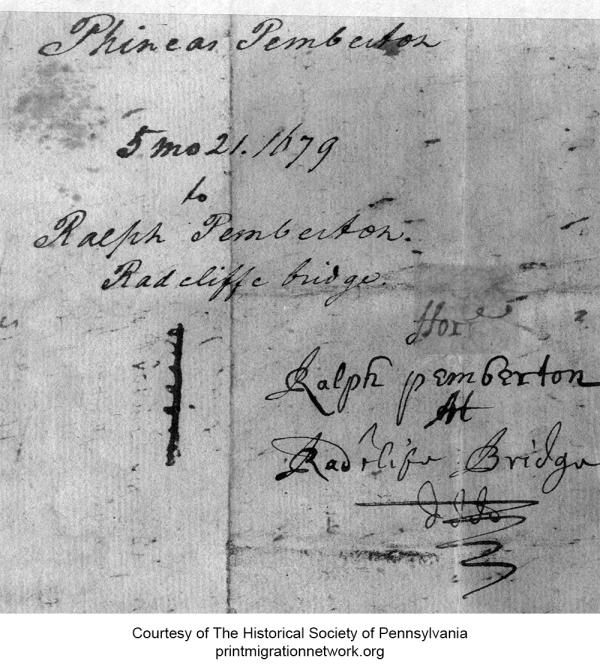 Phineas Pemberton
5 mo 21. 1679
to
Ralph Pemberton.
Radcliffe bridge.
ffor
Ralph pemberton
At
Radclife Bridge
dddd
Courtesy of The Historical Society of Pennsylvania
printmigrationnetwork.org